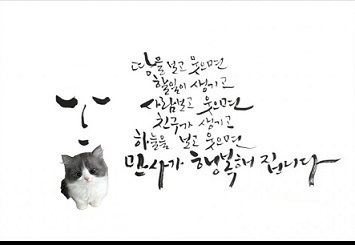 땅을 보고 웃으면
할일이 생기고
사람보고 웃으면
친구가 생기고
하늘을 보고 웃으면
만사가 행복해 집니다